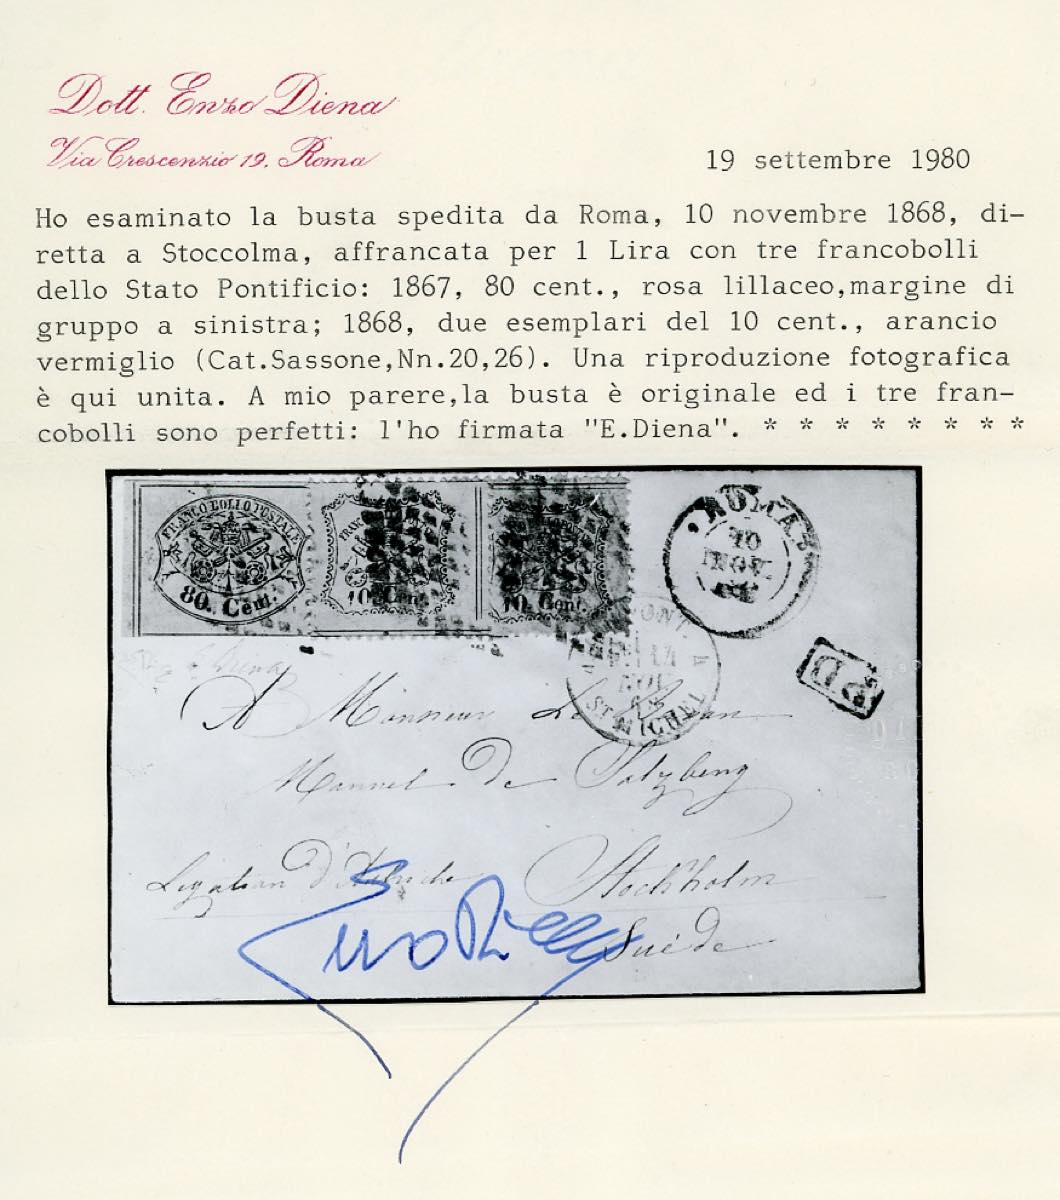 Dott. Enzo Diena
Via Crescenzio 19. Roma
19 settembre 1980
Ho esaminato la busta spedita da Roma, 10 novembre 1868, di-
retta a Stoccolma, affrancata per 1 Lira con tre francobolli
dello Stato Pontificio: 1867, 80 cent., rosa lillaceo,margine di
gruppo a sinistra; 1868, due esemplari del 10 cent., arancio
vermiglio (Cat.Sassone,Nn.20,26). Una riproduzione fotografica
è qui unita. A mio parere,la busta è originale ed i tre fran-
cobolli sono perfetti: l'ho firmata "E.Diena". * * * * * * * *
FRANCO BOLLO POSTALE
80. Cent.
10. Cent.
10. Cent.
ROMA
10
NOV.
68
PD
ST MICHEL
E Diena
A Monsieur Le
de Salzberg
Legation d'Autriche Stockholm
Suède